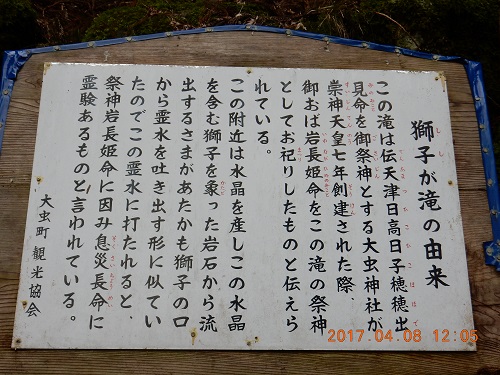 獅子が滝の由来
この滝は伝天津日高日子穂穂出
見命を御祭神とする大虫神社が
崇神天皇七年創建された際、
御おば岩長姫命をこの滝の祭神
としてお祀りしたものと伝えら
れている。
この附近は水晶を産しこの水晶
を含む獅子を象った岩石から流
出するさまがあたかも獅子の口
から霊水を吐き出す形に似てい
たのでこの霊水に打たれると、
祭神岩長姫命に因み息災長命に
霊験あるものと言われている。
大虫町観光協会
2017.04.08 12:05